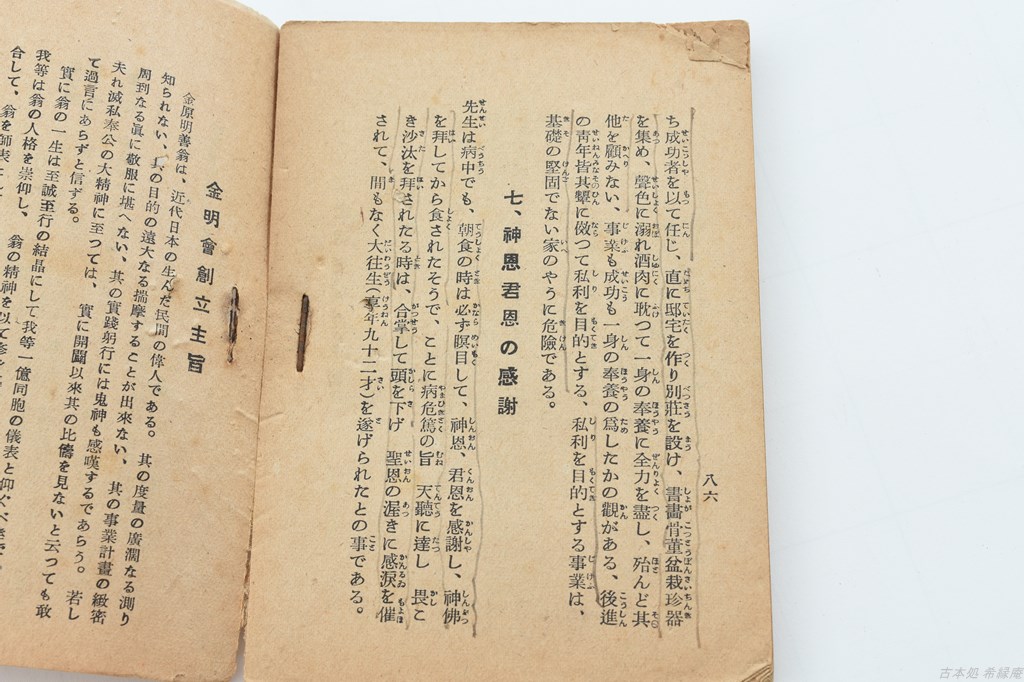 八六
ち成功者を以て任じ、直に邸宅を作り別莊を設け、書畫骨董盆栽珍器
を集め、聲色に溺れ酒肉に耽つて一身の奉養に全力を盡し、殆んど其
他を顧みない、事業も成功も一身の奉養の爲したかの觀がある、後進
の靑年皆其顰に倣つて私利を目的とする、私利を目的とする事業は、
基礎の堅固でない家のやうに危險である。
七、神恩君恩の感謝
先生は病中でも、朝食の時は必ず瞑目して、神恩、君恩を感謝し、神佛
を拜してから食されたそうで、ことに病危篤の旨 天聽に達し 畏こ
き沙汰を拜されたる時は、合掌して頭を下げ 聖恩の渥きに感淚を催
されて、間もなく大往生(享年九十二才)を遂げられたとの事である。
金明會創立主旨
金原明善翁は、近代日本の生んだ民間の偉人である。 其の度量の廣濶なる測り
知られない、其の目的の遠大なる揣摩することが出來ない、其の事業計畫の緻密
周到なる眞に敬服に堪へない、其の實踐躬行には鬼神も感嘆するであらう。 若し
夫れ滅私奉公の大精神に至つては、實に開闢以來其の比儔を見ないと云つても敢
て過言にあらずと信ずる。
實に翁の一生は至誠至行の結晶にして我等一億同胞の儀表と仰ぐべき
我等は翁の人格を崇仰し、 翁の精神を以て
合して、翁を師表
古本処 希縁庵